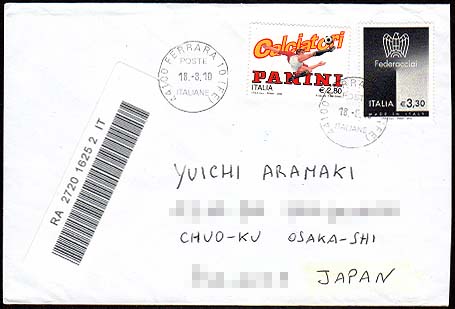 44100 FERRARA 10 (FE)
POSTE
18.-8.10
ITALIANE
Calciatori
PANINI
ITALIA
€2,80
Federacciai
ITALIA €3,30
MADE IN ITALY
44100 FERRARA 10 (FE)
POSTE
18.-8.10
ITALIANE
RA 2720 1625 2 IT
YUICHI ARAMAKI
CHUO-KU OSAKA-SHI
JAPAN